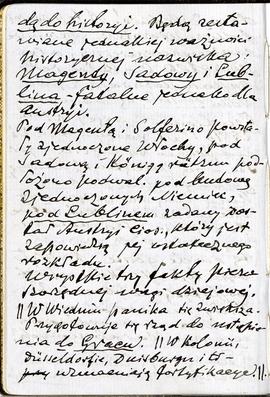 dą do historyi. Będą zesta-
wiane jednakiej ważności
historycznej nazwiska:
Magenty, Sadowy i Lub-
lina - fatalne jednako dla
Austryi.
Pod Magentą i Solferino powsta-
ły zjednoczone Włochy, pod
Sadową i Königgrätzem pod-
łożono podwal. pod budowę
zjednoczonych Niemiec,
pod Lublinem zadany zos-
tał Austryi cios, który jest
zapowiedzią jej ostatecznego
rozkładu.
Wszystkie trzy fakty pierw-
szorzędnej wagi dziejowej.
|| W Wiedniu panika się zwiększa.
Przygotowuje się rząd do ustąpie-
nia do Gracu. || W Kolonii,
Düsseldorfie, Duisburgu i
wzmacniają fortyfikacye. ||